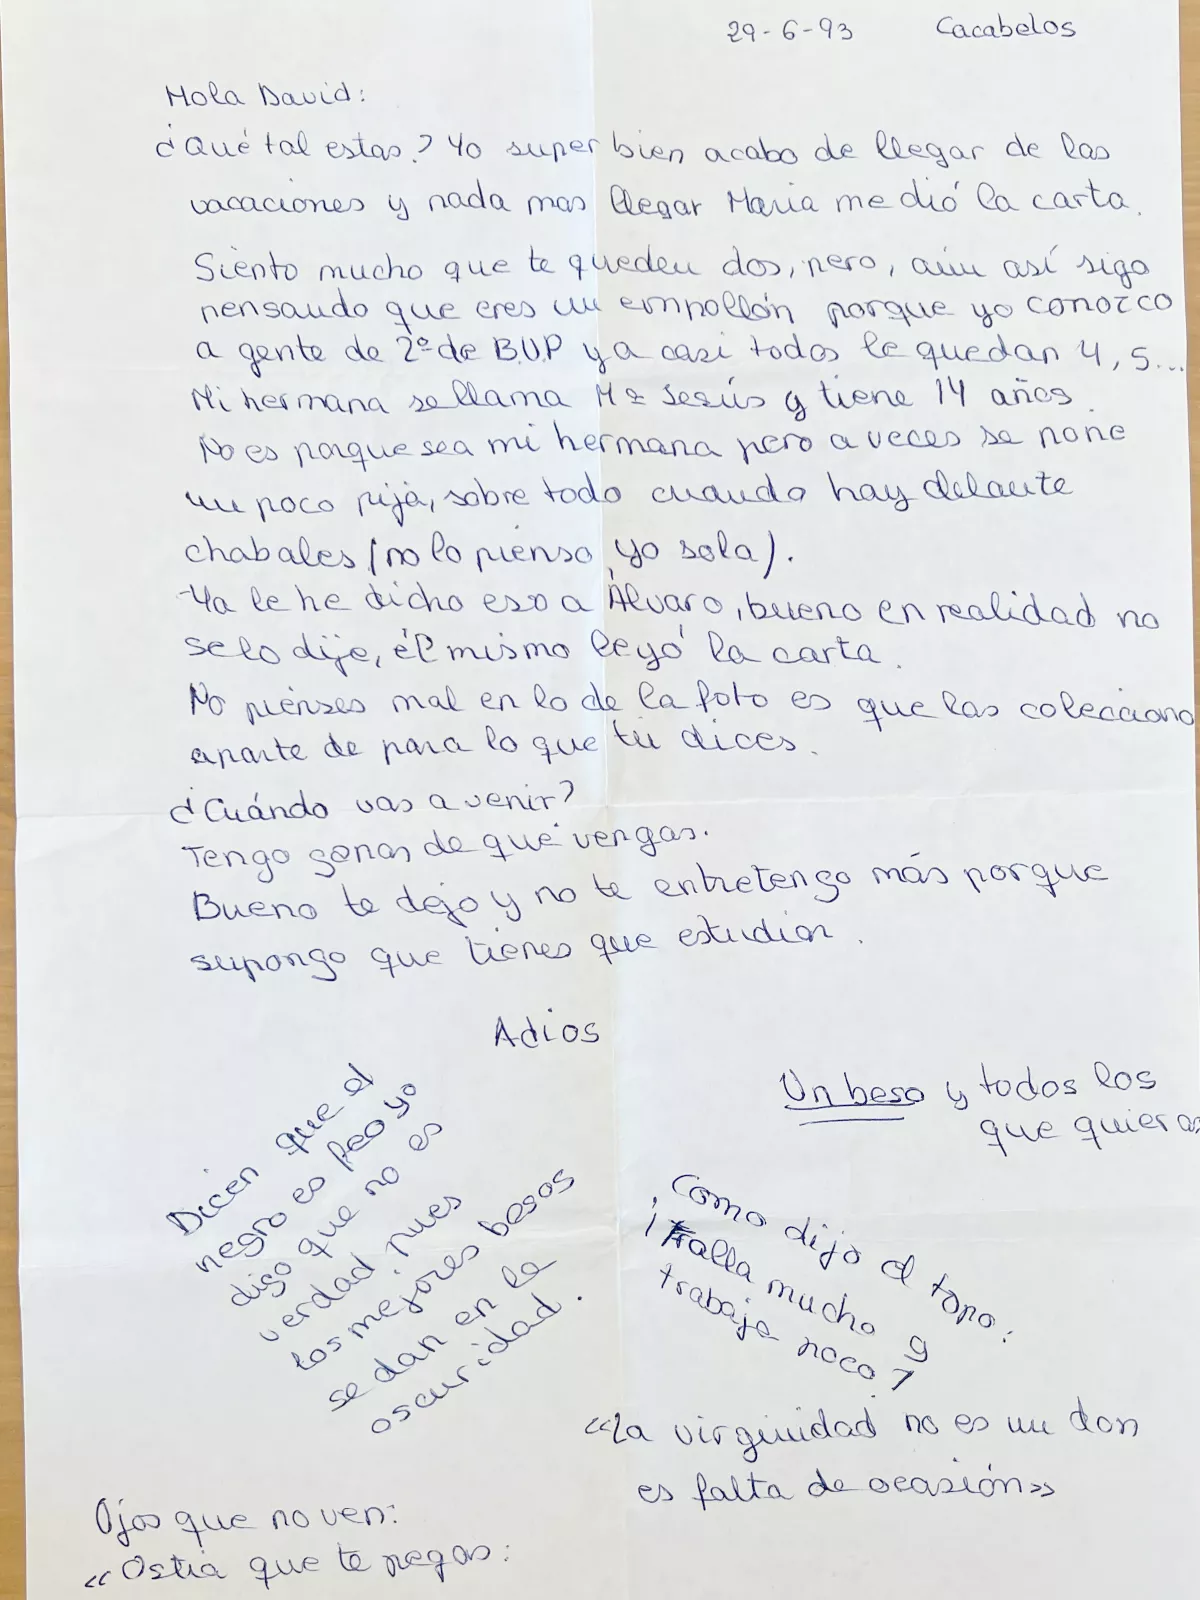 29-6-93 Cacabelos
Hola David:
¿Qué tal estas? Yo super bien acabo de llegar de las
vacaciones y nada mas llegar Maria me dió la carta.
Siento mucho que te queden dos, pero, aún así sigo
pensando que eres un empollón porque yo conozco
a gente de 2º de B.U.P y a casi todos le quedan 4, 5...
Mi hermana se llama Mª Jesús y tiene 14 años.
No es porque sea mi hermana pero a veces se pone
un poco pija, sobre todo cuando hay delante
chabales (no lo pienso yo sola).
-Ya le he dicho eso a Álvaro, bueno en realidad no
se lo dije, él mismo leyó la carta.
No pienses mal en lo de la foto es que las colecciono
aparte de para lo que tú dices.
¿Cuándo vas a venir?
Tengo ganas de que vengas.
Bueno te dejo y no te entretengo más porque
supongo que tienes que estudiar.
Adios
Un beso y todos los
que quieras
Dicen que el
negro es feo yo
digo que no es
verdad pues
los mejores besos
se dan en la
oscuridad.
Como dijo el topo:
¡Folla mucho y
trabaja poco!
«La virginidad no es un don
es falta de ocasión»
Ojos que no ven:
«Ostia que te pegas: